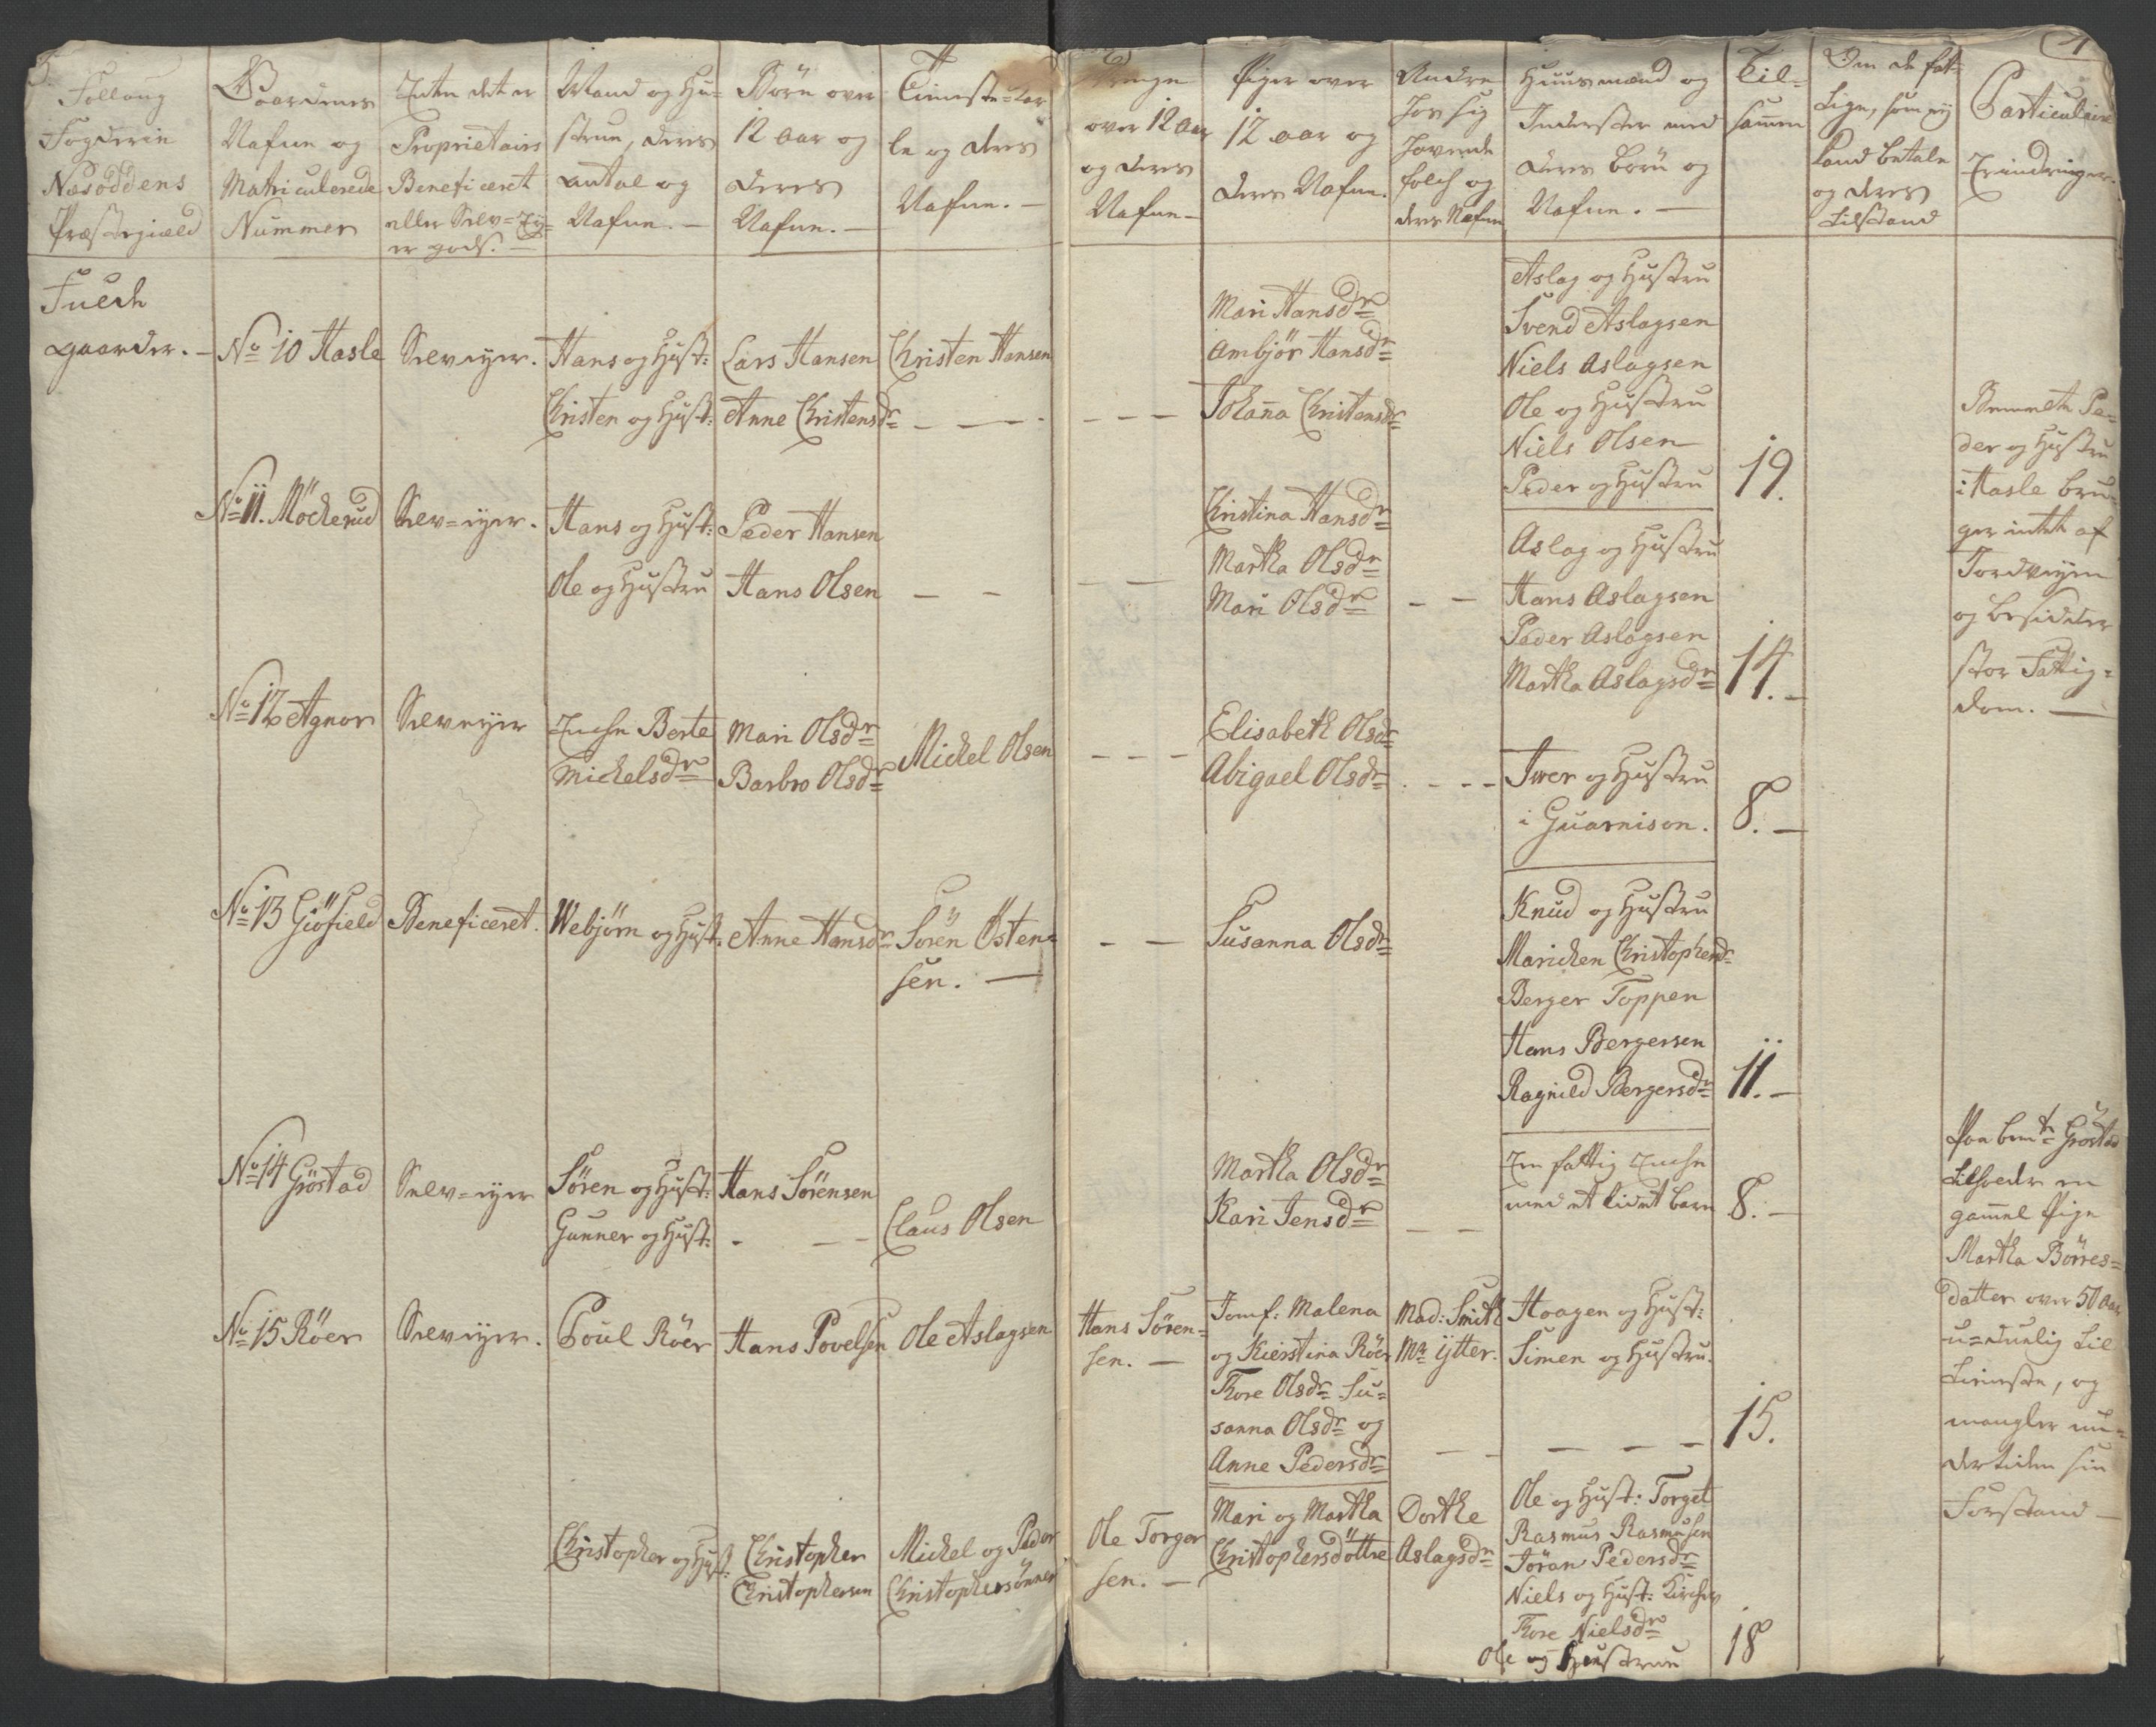 Follaug
Fogderie
Næsoddens
Præstegield
Gaardenes
Nafne og
Matriculerede
Nummer
Enten det er
Proprietairs
Beneficeret
eller Selv=Ey=
er gods. —
Mand og Hu=
strue, deres
antal og
Nafne. —
Börn over
12 aar og
deres
Nafne. —
Tieneste-Kar
le og deres
Nafne. —
Drenge
over 12 Aar
og deres
Nafne —
Piger over
12 aar og
deres Nafne.
Andre
hos sig
havende
folch og
deres Nafne
Huusmænd og
Inderster med
deres börn og
Nafne. —
Til=
sammen
Den de fat=
tige, som ej
kand betale
og deres
tilstand
1
Particulaire
Erindringer.
Fulde
gaarder. —
No 10 Hasle
Selveyer.
Hans og Hust:
Christen og Hust:
Lars Hansen
Anne Christensdr
Christen Hansen
— — —
— — —
Mari Hansdr
Ambjör Hansdr
Johanna Christensdr
Aslag og Hustru
Svend Aslagsen
Niels Aslagsen
Ole og Hustru
Niels Olsen
Peder og Hustru
19.
Bemeldte Pe=
der og Hustru
i Hasle bru=
ger intet af
Jordvejen
og besidder
stor Fattig=
dom. —
No 11. Möckerud
Selv=eyer.
Hans og Hust:
Ole og Hustru
Peder Hansen
Hans Olsen
— —
— —
Christina Hansdr
Martha Olsdr
Mari Olsdr
— —
Aslag og Hustru
Hans Aslagsen
Peder Aslagsen
Martha Aslagsdr
14. —
No 12 Agnor
Selveyer
Encke Berte
Michelsdr
Mari Olsdr
Barbro Olsdr
Michel Olsen
— — —
Elisabeth Olsdr
Abigael Olsdr
- - - -
Iwer og Hustru
i Guarnison.
8. —
No 13 Giöfield
Beneficeret.
Webjörn og Hust:
Anne Hansdr
Sören Östen=
sen. —
— —
Susanna Olsdr
Knud og Hustru
Marichen Christophersdr
Berger Toppen
Hans Bergersen
Ragnild Bergersdr
11. —
No 14 Gröstad
Selv=eyer
Sören og Hust:
Gunner og Hust:
Hans Sörensen
- — —
Claus Olsen
Martha Olsdr
Kari Jensdr
— —
En fattig Encke
med et lidet barn
8. —
Paa bemte Gröstad
tilholder en
gammel Pige
Martha Börres=
datter over 50 Aar
u=duelig til
tieneste, og
mangler un=
dertiden sin
Forstand —
No 15 Röer
Selveyer.
Poul Röer
Hans Povelsen
Ole Aslagsen
Hans Sören=
sen. —
Jomf: Malena
og Kierstina Röer
Thore Olsdr Su=
sanna Olsdr og
Anne Pedersdr
Mad: Smith
Mr ÿtter.
— —
Haagen og Hust:
Simen og Hustru.
— — —
15.
Christopher og Hust:
Christopher
Christophersen
Michel og Peder
Christophersönner
Ole Torger
sen. —
Mari og Martha
Christophersdöttre
Dorthe
Aslagsdr
Ole og Hust: Torget
Rasmus Rasmusen
Jöran Pedersdr
Niels og Hust:
Thore Nielsdr
Ole og Hustrue
18